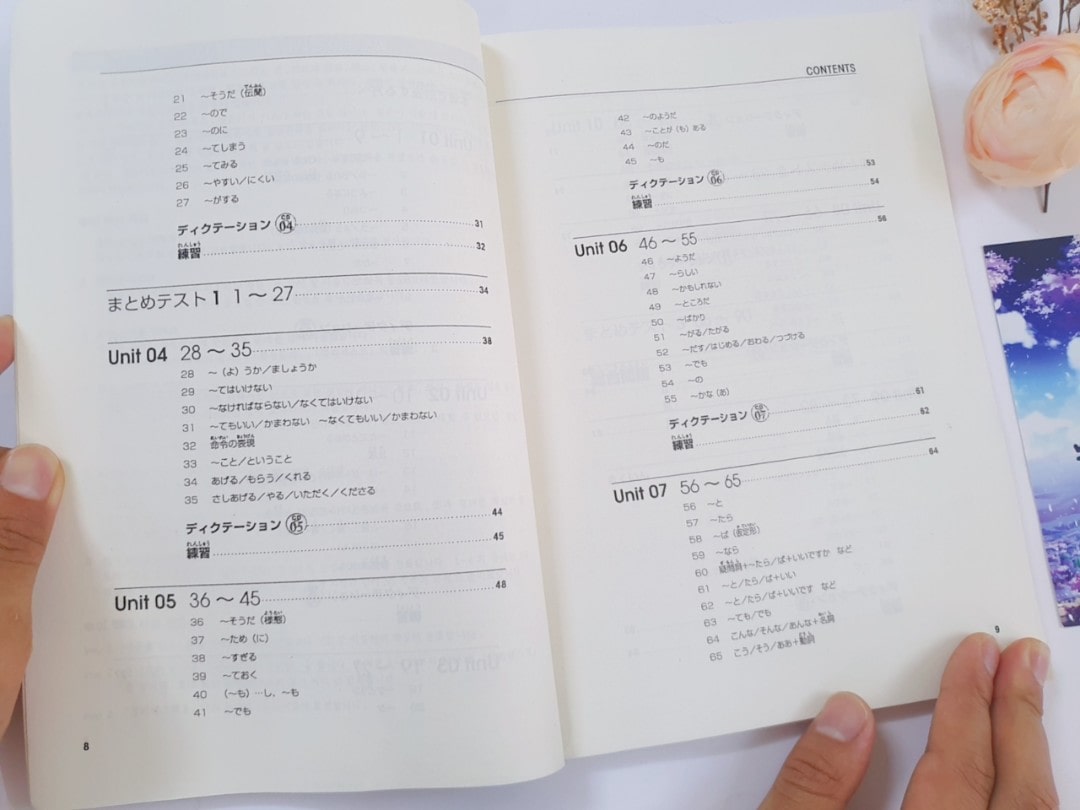 21 ～そうだ（伝聞）
22 ～ので
23 ～のに
24 ～てしまう
25 ～てみる
26 ～やすい／にくい
27 ～がする
ディクテーション CD 04 31
練習 32
まとめテスト1 1～27 34
Unit 04 28～35 38
28 ～（よ）うか／ましょうか
29 ～てはいけない
30 ～なければならない／なくてはいけない
31 ～てもいい／かまわない ～なくてもいい／かまわない
32 命令の表現
33 ～こと／ということ
34 あげる／もらう／くれる
35 さしあげる／やる／いただく／くださる
ディクテーション CD 05 44
練習 45
Unit 05 36～45 48
36 ～そうだ（様態）
37 ～ため（に）
38 ～すぎる
39 ～ておく
40 （～も）…し、～も
41 ～でも
8
CONTENTS
42 ～のようだ
43 ～ことが（も）ある
44 ～のだ
45 ～も
ディクテーション CD 06 53
練習 54
Unit 06 46～55 56
46 ～ようだ
47 ～らしい
48 ～かもしれない
49 ～ところだ
50 ～ばかり
51 ～がる／たがる
52 ～だす／はじめる／おわる／つづける
53 ～でも
54 ～の
55 ～かな（あ）
ディクテーション CD 07 61
練習 62
Unit 07 56～65 64
56 ～と
57 ～たら
58 ～ば（仮定形）
59 ～なら
60 疑問詞＋～たら／ば＋いいですか など
61 ～と／たら／ば＋いい
62 ～と／たら／ば＋いいです など
63 ～ても／でも
64 こんな／そんな／あんな＋名詞
65 こう／そう／ああ＋動詞
9